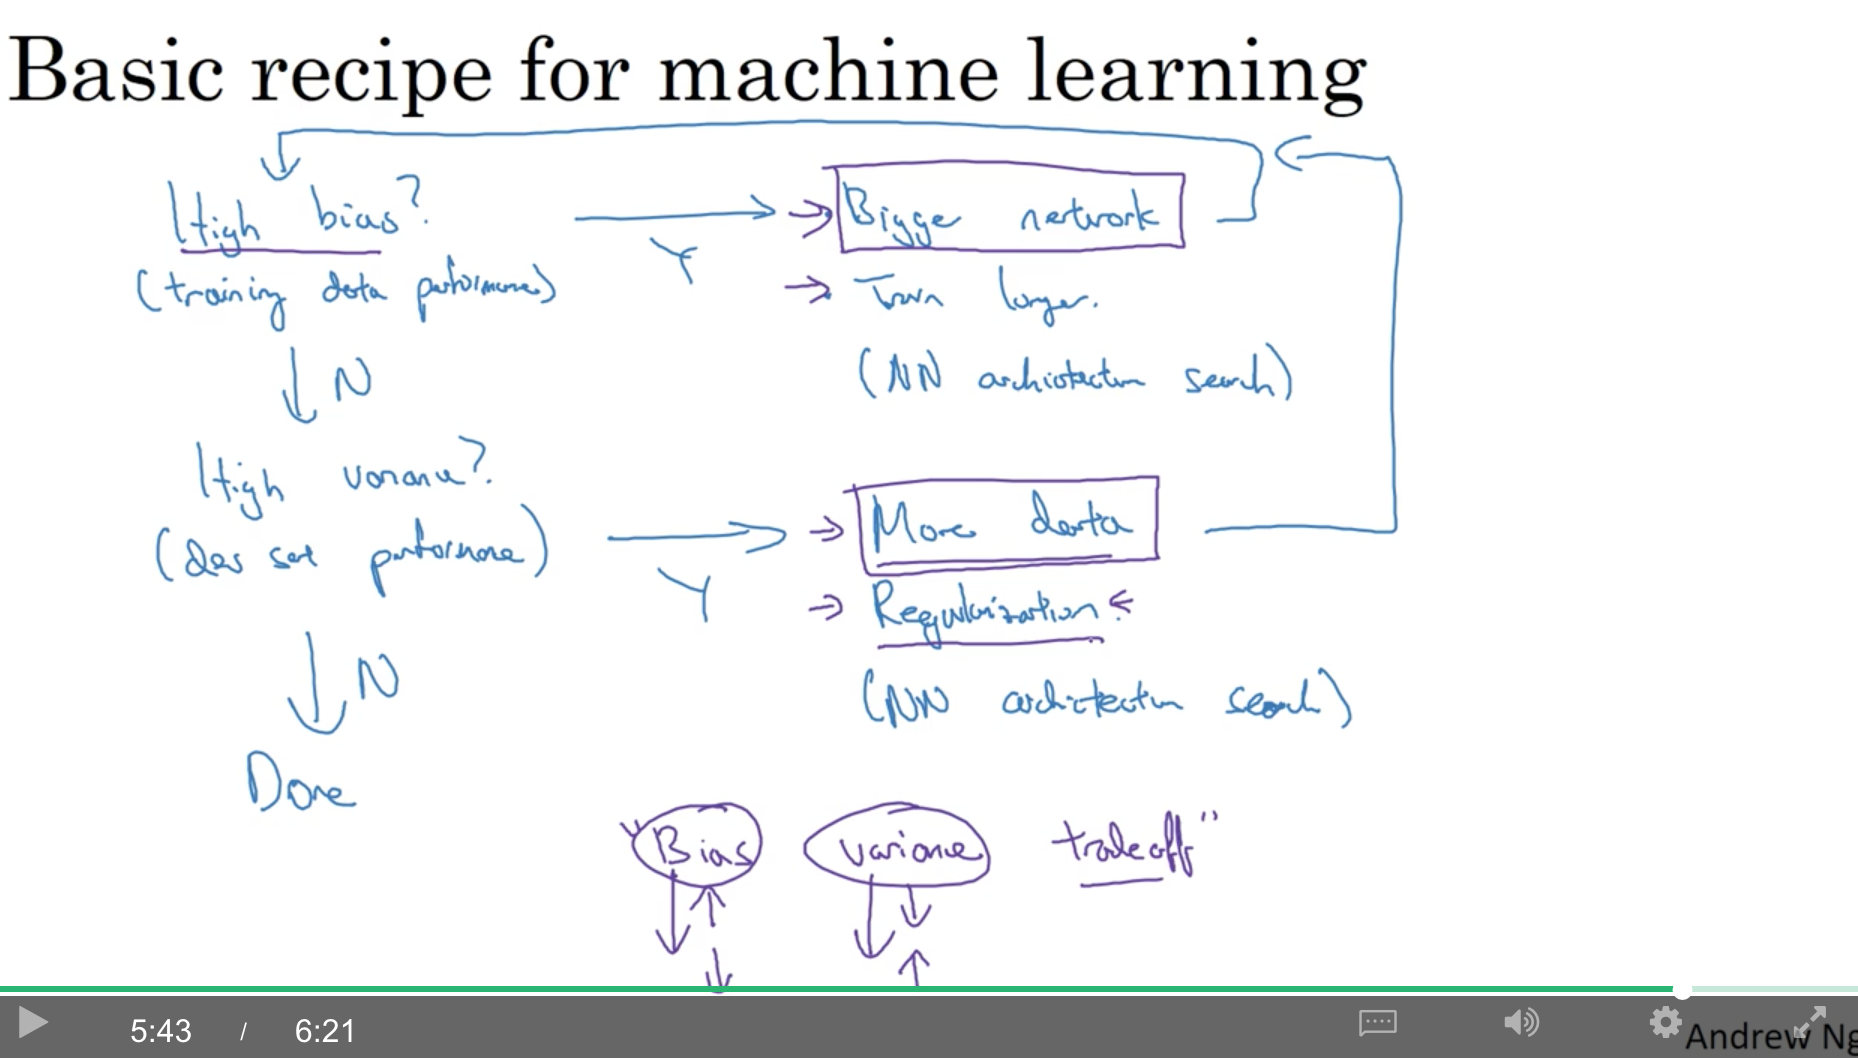 Basic recipe for machine learning
High bias?
(training data performance)
Y
Bigger network
Train longer.
(NN architecture search)
N
High variance?
(dev set performance)
Y
More data
Regularization
(NN architecture search)
N
Done
"Bias variance tradeoff"
5:43 / 6:21
Andrew Ng